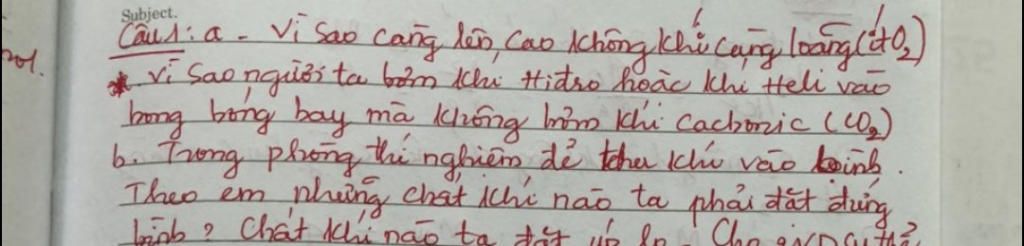 Subject.
Câu 1: a - Vì sao càng lên cao không khí càng loãng (ít O2)
* Vì sao người ta bơm khí Hiđro hoặc khí Heli vào
bong bóng bay mà không bơm khí cacbonic (CO2)
b. Trong phòng thí nghiệm để thu khí vào bình.
Theo em những chất khí nào ta phải đặt đứng
bình? Chất khí nào ta đặt úp Cho